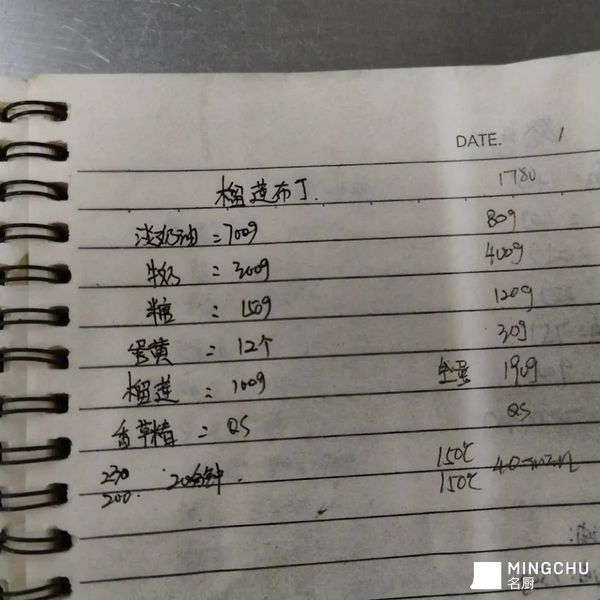 DATE. /
榴莲布丁. 1780
淡奶油 = 700g 80g
牛奶 = 300g 400g
糖 = 150g 120g
蛋黄 = 12个 30g
榴莲 = 100g 全蛋 190g
香草精 = QS QS
230 20分钟. 150℃ 40min
200. 150℃
MINGCHU
名厨